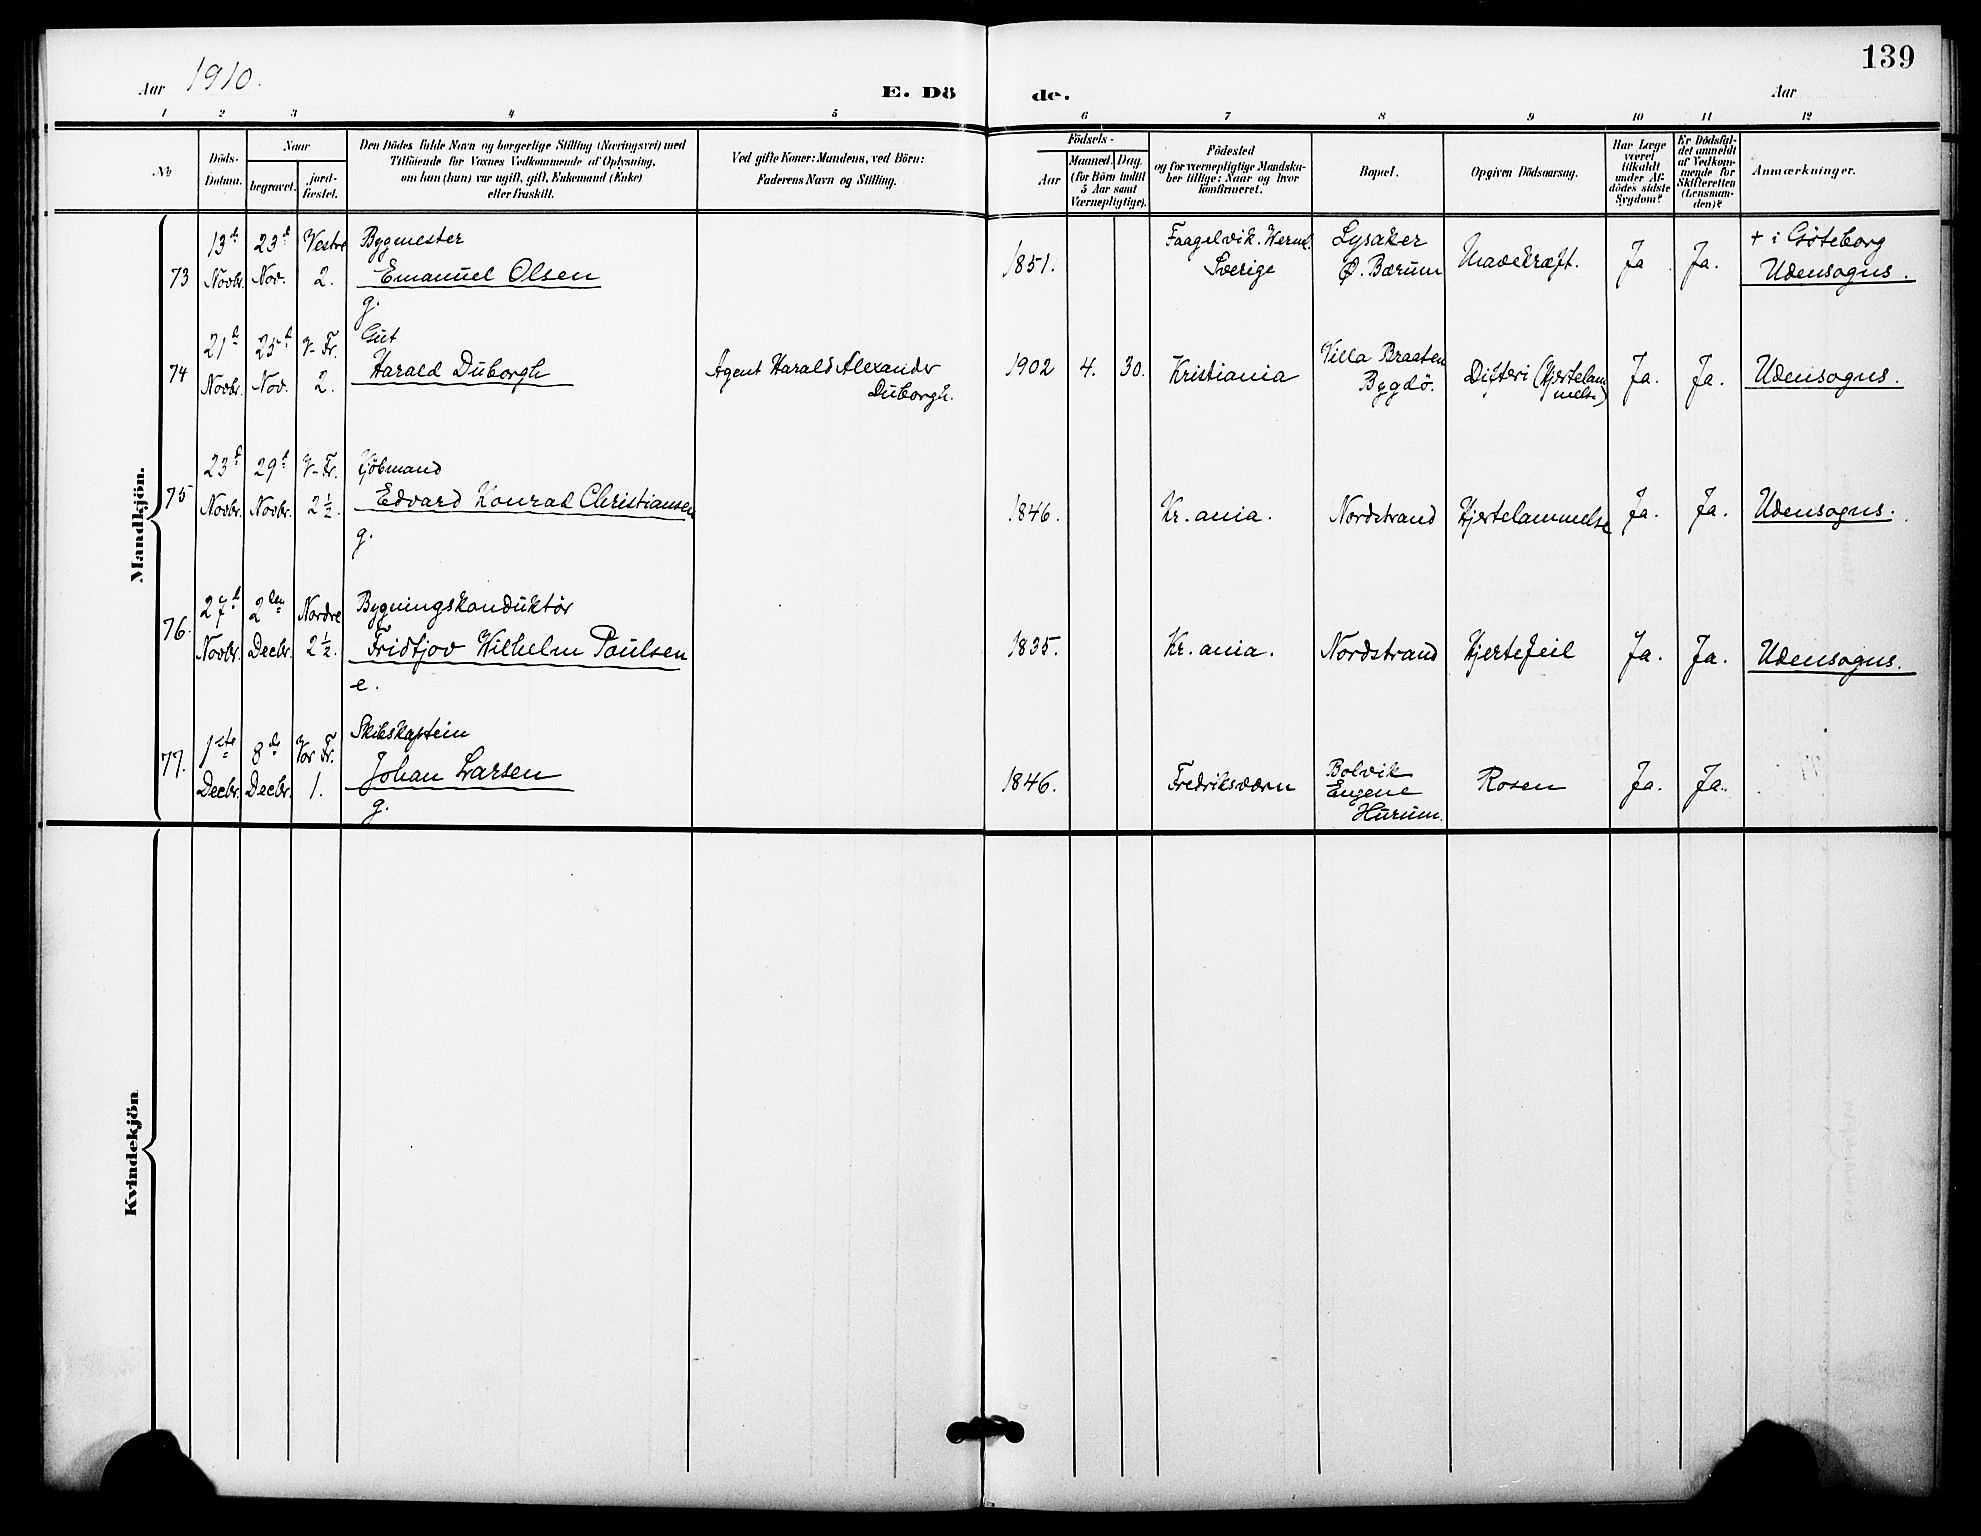 139
Aar 1910.
E. Dö de.
Aar
1 2 3 4 5 6 7 8 9 10 11 12
No
Döds-
Datum.
Naar
begravet.
jord-
fæstet.
Den Dödes fulde Navn og borgerlige Stilling (Næringsvei) med
Tilföiende for Voxnes Vedkommende af Oplysning,
om han (hun) var ugift, gift, Enkemand (Enke)
eller fraskilt.
Ved gifte Koner: Mandens, ved Börn:
Faderens Navn og Stilling.
Födsels-
Aar
Maaned. Dag.
(for Börn indtil
5 Aar samt
Værnepligtige).
Födested
og for værnepligtige Mandska-
ber tillige: Naar og hvor
konfirmeret.
Bopæl.
Opgiven Dödsaarsag.
Har Læge
været
tilkaldt
under Af-
dödes sidste
Sygdom?
Er Dödsfal-
det anmeldt
af Vedkom-
mende for
Skifteretten
(Lensman-
den)?
Anmærkninger.
Mandkjön.
73
13de
Novbr.
23d
Nov.
Vestre
2.
Bygmester
Emanuel Olsen
g.
1851.
Sverige
Lysaker
Ø. Bærum
Mavekræft.
Ja
Ja.
+ i Göteborg
Udensogns.
74
21d
Novbr.
25d
Nov.
V-Fr.
2.
Gut
Harald Duborgh
Agent Harald Alexander
Duborgh.
1902 4. 30.
Kristiania
Villa Braaten
Bygdö.
Difteri (Hjertelam
melse)
Ja.
Ja.
Udensogns.
75
23d
Novbr.
29d
Novbr.
V-Fr.
2½.
Kjöbmand
Edvard Konrad Christiansen
g.
1846.
Kr.ania.
Nordstrand
Hjertelammelse
Ja.
Ja.
Udensogns.
76.
27d
Novbr.
2den
Decbr.
Nordre
2½.
Bygningskonduktör
Fridtjov Wilhelm Paulsen
e.
1835.
Kr.ania.
Nordstrand
Hjertefeil
Ja.
Ja.
Udensogns.
77.
1ste
Decbr.
8de
Decbr.
Vor Fr.
1.
Skibskaptein
Johan Larsen
g.
1846.
Fredriksværn
Bolvik
Engene
Hurum.
Rosen
Ja.
Ja.
Kvindekjön